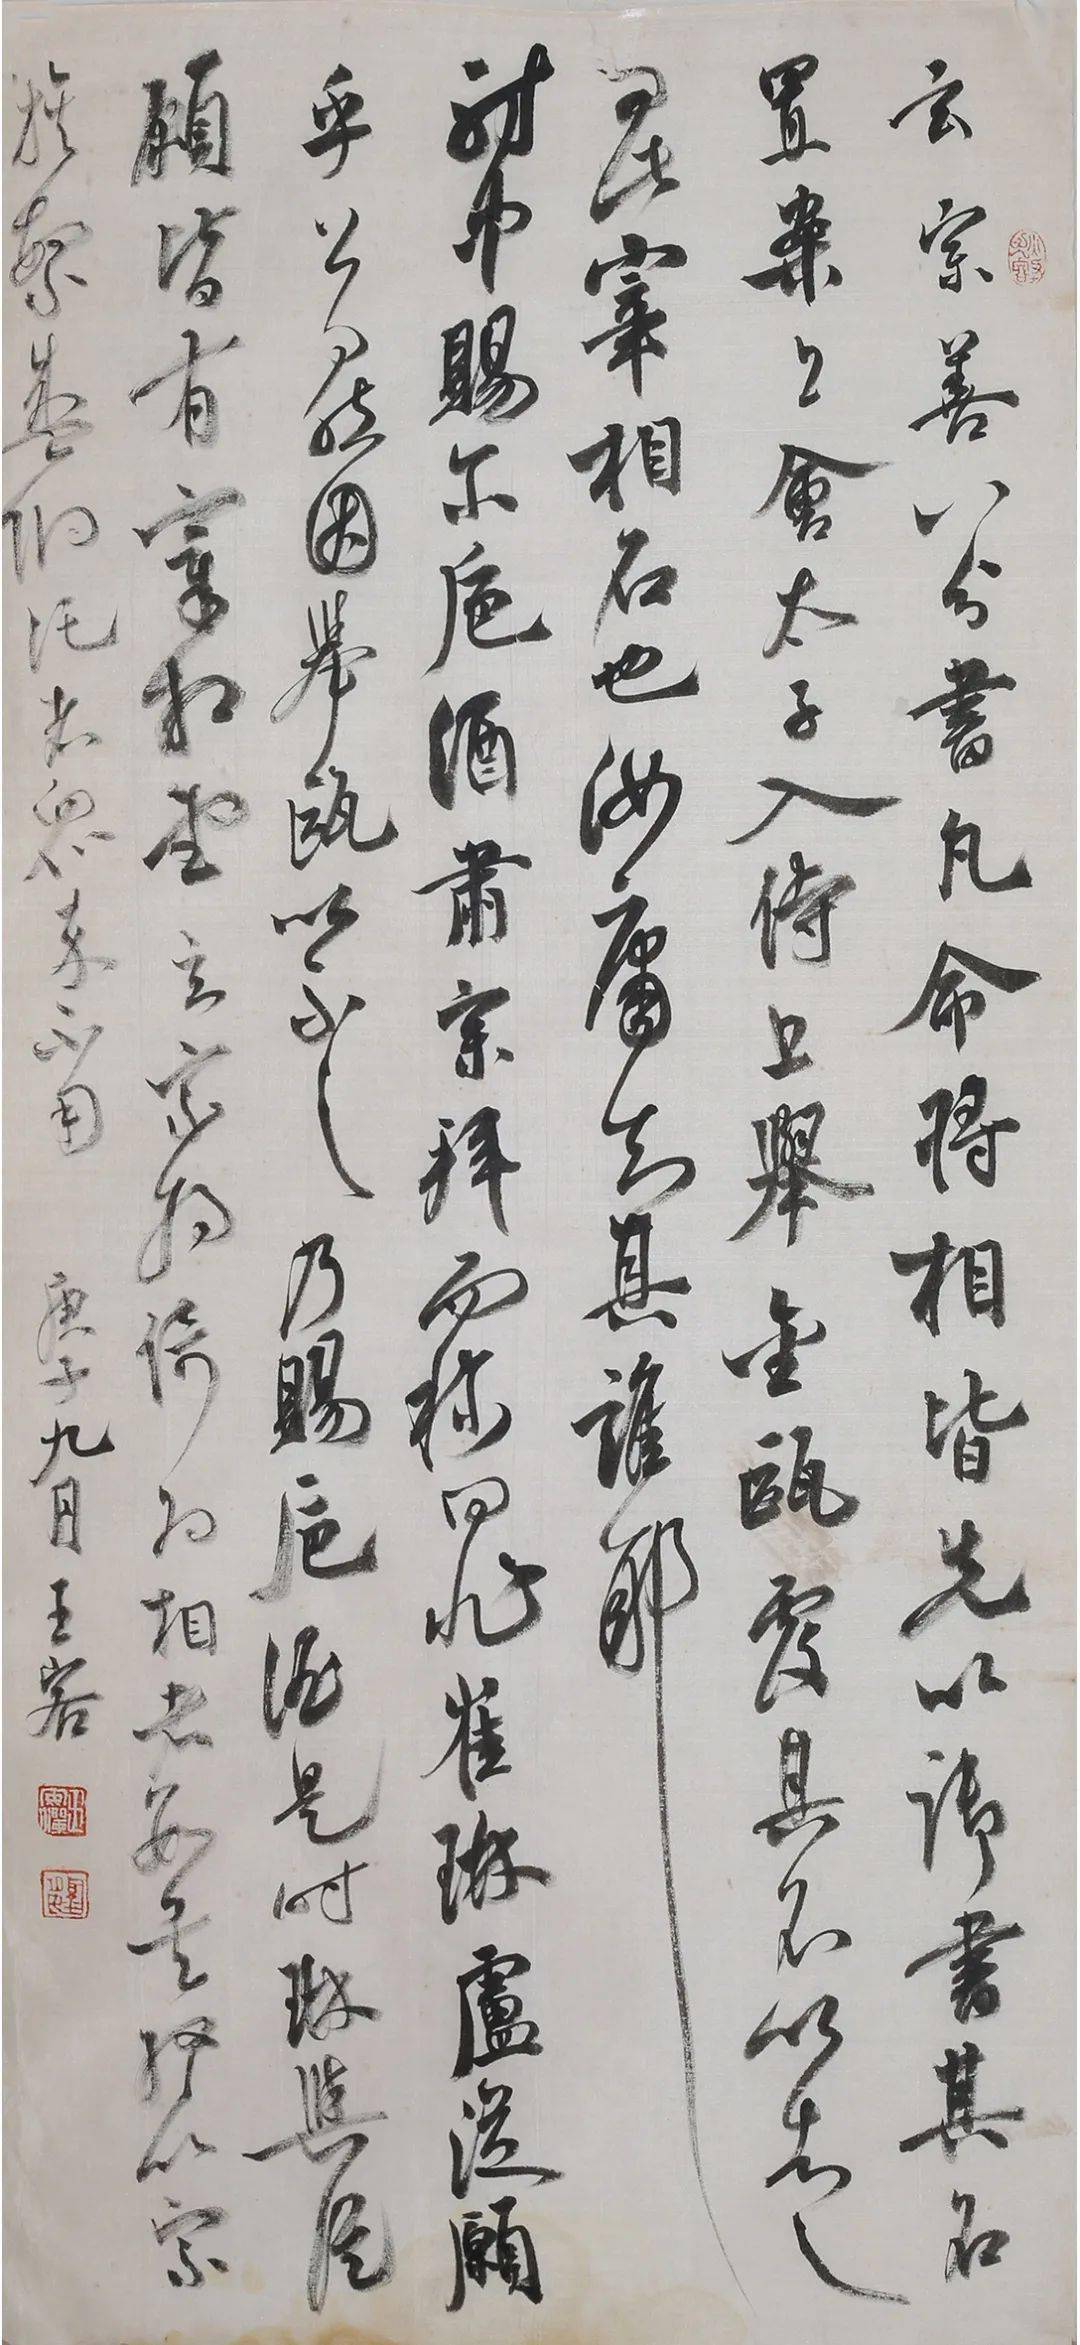 玄宗善八分書凡命將相皆先以御書其名
置案上會太子入侍上舉金甌覆其名以告之
曰此宰相名也汝庸知其誰耶
射中賜尔卮酒肅宗拜而稱曰非崔琳盧從願
乎上曰然因舉甌以示之乃賜卮酒是時琳與從
願皆有宰相望玄宗將倚為相者數矣終以宗
族繁盛附託者眾卒不用
庚子九月王容